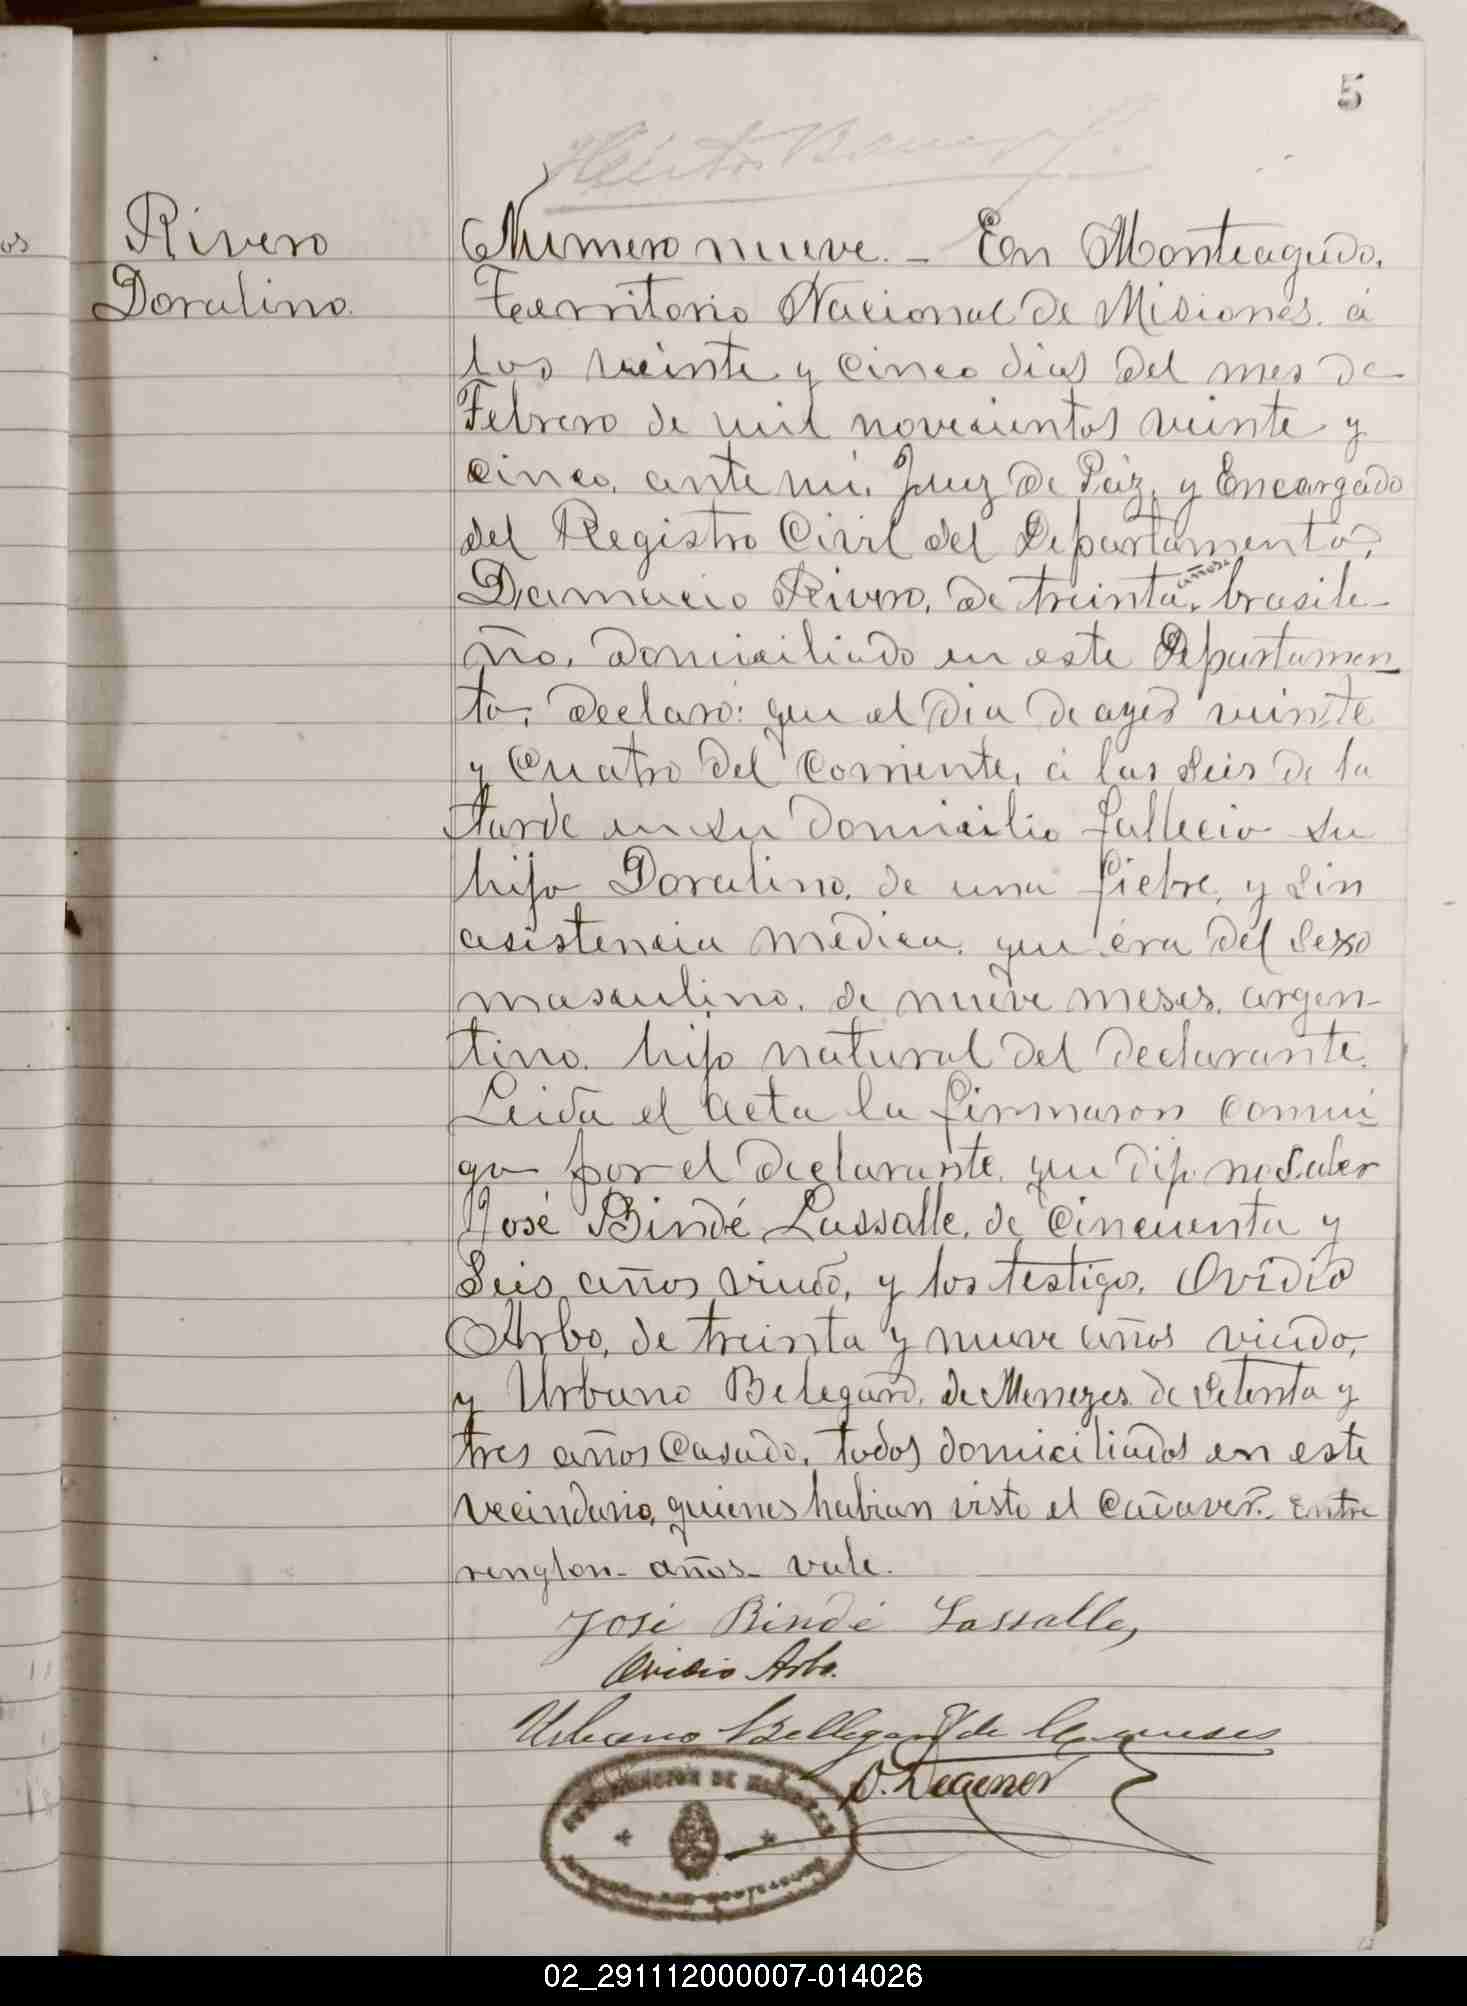 5
Rivero
Doralino.
Numero nueve. - En Monteagudo,
Territorio Nacional de Misiones. á
los veinte y cinco dias del mes de
Febrero de mil novecientos veinte y
cinco, ante mi, Juez de Páz, y Encargado
del Registro Civil del Departamento,
Damacio Rivero, de treinta años, brasile-
ño, domiciliado en este Departamen
to, declaró: que el dia de ayer veinte
y cuatro del corriente, á las seis de la
tarde en su domicilio fallecio su
hijo Doralino, de una fiebre, y sin
asistencia medica, que éra del sexo
masculino, de nueve meses, argen-
tino. hijo natural del declarante.
Leida el acta la firmaron conmi
go por el declarante, que dijo no saber
José Bindé Lassalle, de cincuenta y
seis años viudo, y los testigos, Ovidio
Arbo, de treinta y nueve años viudo,
y Urbano Belegard, de Menezes de setenta y
tres años casado, todos domiciliados en este
vecindario, quienes habian visto el cadaver. Entre
renglon- años- vale.
José Bindé Lassalle,
Ovidio Arbo.
Urbano Bellegard de Menezes
O. Degener
02_291112000007-014026